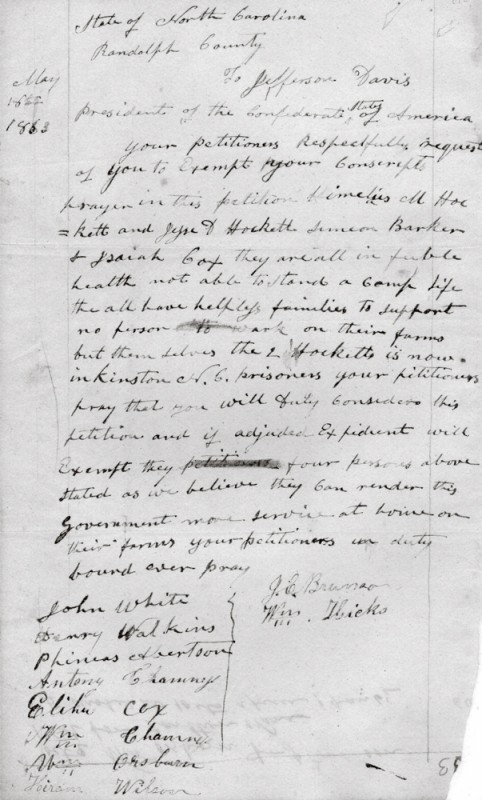 State of North Carolina
Randolph County
To Jefferson Davis
May
1863
1863
President of the Confederate States of America
your petitioners Respectfully request
of you to Exempt your Conscripts
prayer in this petition Himelius M Hoc
=kett and Jesse D Hockett Simeon Barker
& Isaiah Cox they are all in feeble
health not able to stand a Camp life
the all have helpless families to support
no person to work on their farms
but them selves the 2 Hocketts is now
in Kinston N.C. prisoners your pititioners
pray that you will duly Consider this
petition and if adjuded Expidient will
Exempt they petitioners four persons above
stated as we believe they Can render this
Government more service at home on
their farms your petitioners in duty
bound ever pray
John White
Henry Watkins
Phineas Albertson
Antony Chamnes
Elihu Cox
Wm Chamnes
Osburn
Hiram Wilson
J. C.
Wm. Hicks